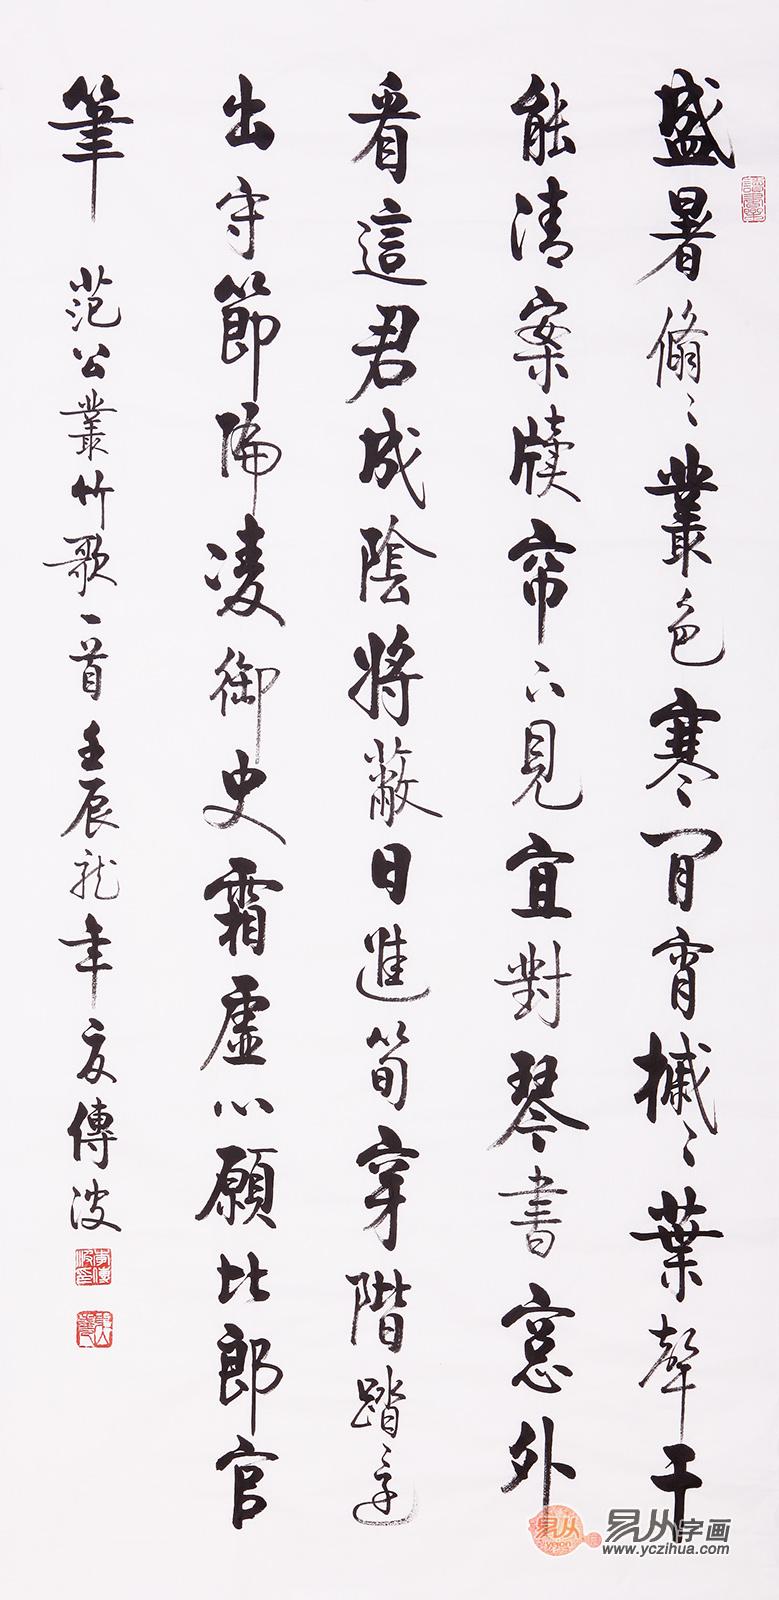 盛暑翛〻叢色寒閒宵槭〻葉聲干
能清案牘帘下見宜對琴書窓外
看這君成陰將蔽日進筍穿階踏還
出守節偏凌御史霜虛心願比郎官
筆 范公叢竹歌一首壬辰龍年夏傳波
易从
ycjon
易从字画
www.yczihua.com